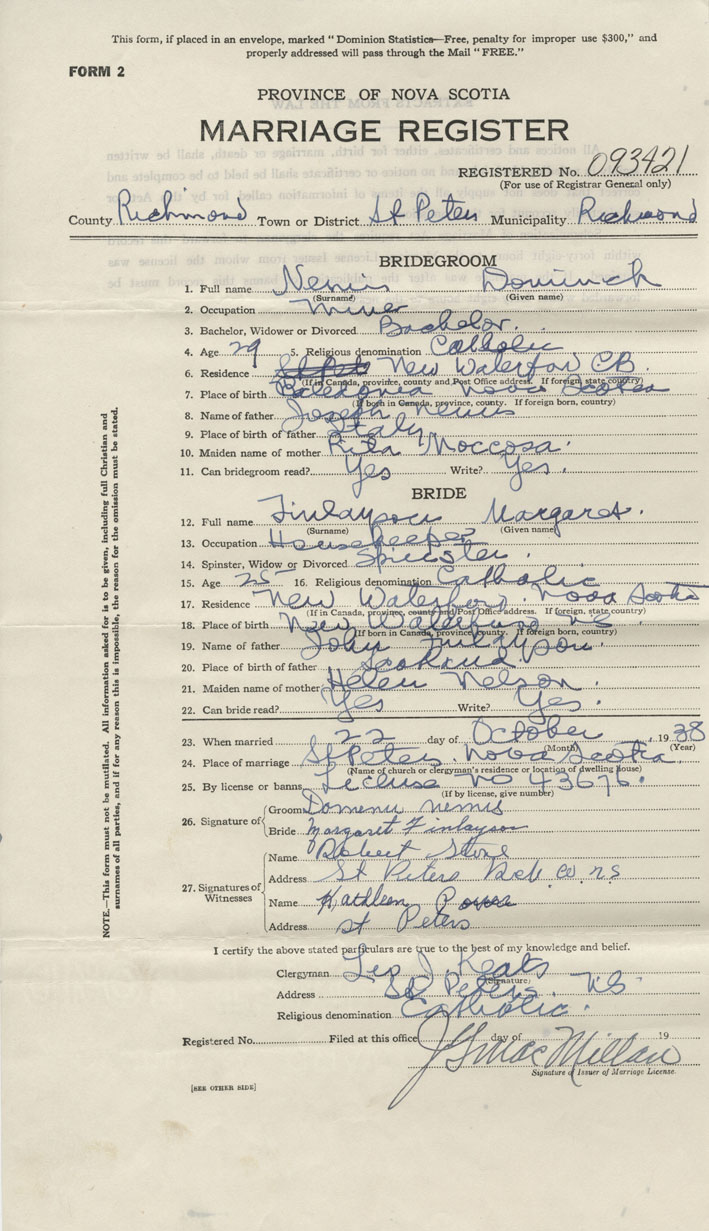 This form, if placed in an envelope, marked "Dominion Statistics—Free, penalty for improper use $300," and
properly addressed will pass through the Mail "FREE."
FORM 2
PROVINCE OF NOVA SCOTIA
MARRIAGE REGISTER
REGISTERED No. 093421
(For use of Registrar General only)
County Richmond Town or District St Peters Municipality Richmond
BRIDEGROOM
1. Full name Nemis Dominick
(Surname) (Given name)
2. Occupation Miner
3. Bachelor, Widower or Divorced Bachelor.
4. Age 29 5. Religious denomination Catholic
6. Residence New Waterford CB.
(If in Canada, province, county and Post Office address. If foreign, state, country)
7. Place of birth Caledonia Nova Scotia
(If born in Canada, province, county. If foreign born, country)
8. Name of father Joseph Nemis
9. Place of birth of father Italy
10. Maiden name of mother Rita Moccosa.
11. Can bridegroom read? Yes Write? Yes.
BRIDE
12. Full name Finlayson Margaret.
(Surname) (Given name)
13. Occupation Housekeeper
14. Spinster, Widow or Divorced Spinster.
15. Age 25 16. Religious denomination Catholic
17. Residence New Waterford. Nova Scotia
(If in Canada, province, county and Post Office address. If foreign, state, country)
18. Place of birth New Waterford NS
(If born in Canada, province, county. If foreign born, country)
19. Name of father John Finlayson.
20. Place of birth of father Scotland.
21. Maiden name of mother Helen Nelson.
22. Can bride read? Yes Write? Yes.
23. When married 22 day of October, 1938
(Month) (Year)
24. Place of marriage St Peters. Nova Scotia.
(Name of church or clergyman's residence or location of dwelling house)
25. By license or banns License No 43676.
(If by license, give number)
26. Signature of
Groom Nemis
Bride Margaret Finlayson
27. Signatures of Witnesses
Name Robert Stone
Address St Peters Rich Co NS
Name Kathleen
Address St Peters
I certify the above stated particulars are true to the best of my knowledge and belief.
Clergyman Leo J. Keats
(Signature)
Address St Peters. NS
Religious denomination Catholic.
Registered No. Filed at this office day of 19
J G MacMillan
Signature of Issuer of Marriage License.
[SEE OTHER SIDE]
NOTE.—This form must not be mutilated. All information asked for is to be given, including full Christian and
surnames of all parties, and if for any reason this is impossible, the reason for the omission must be stated.